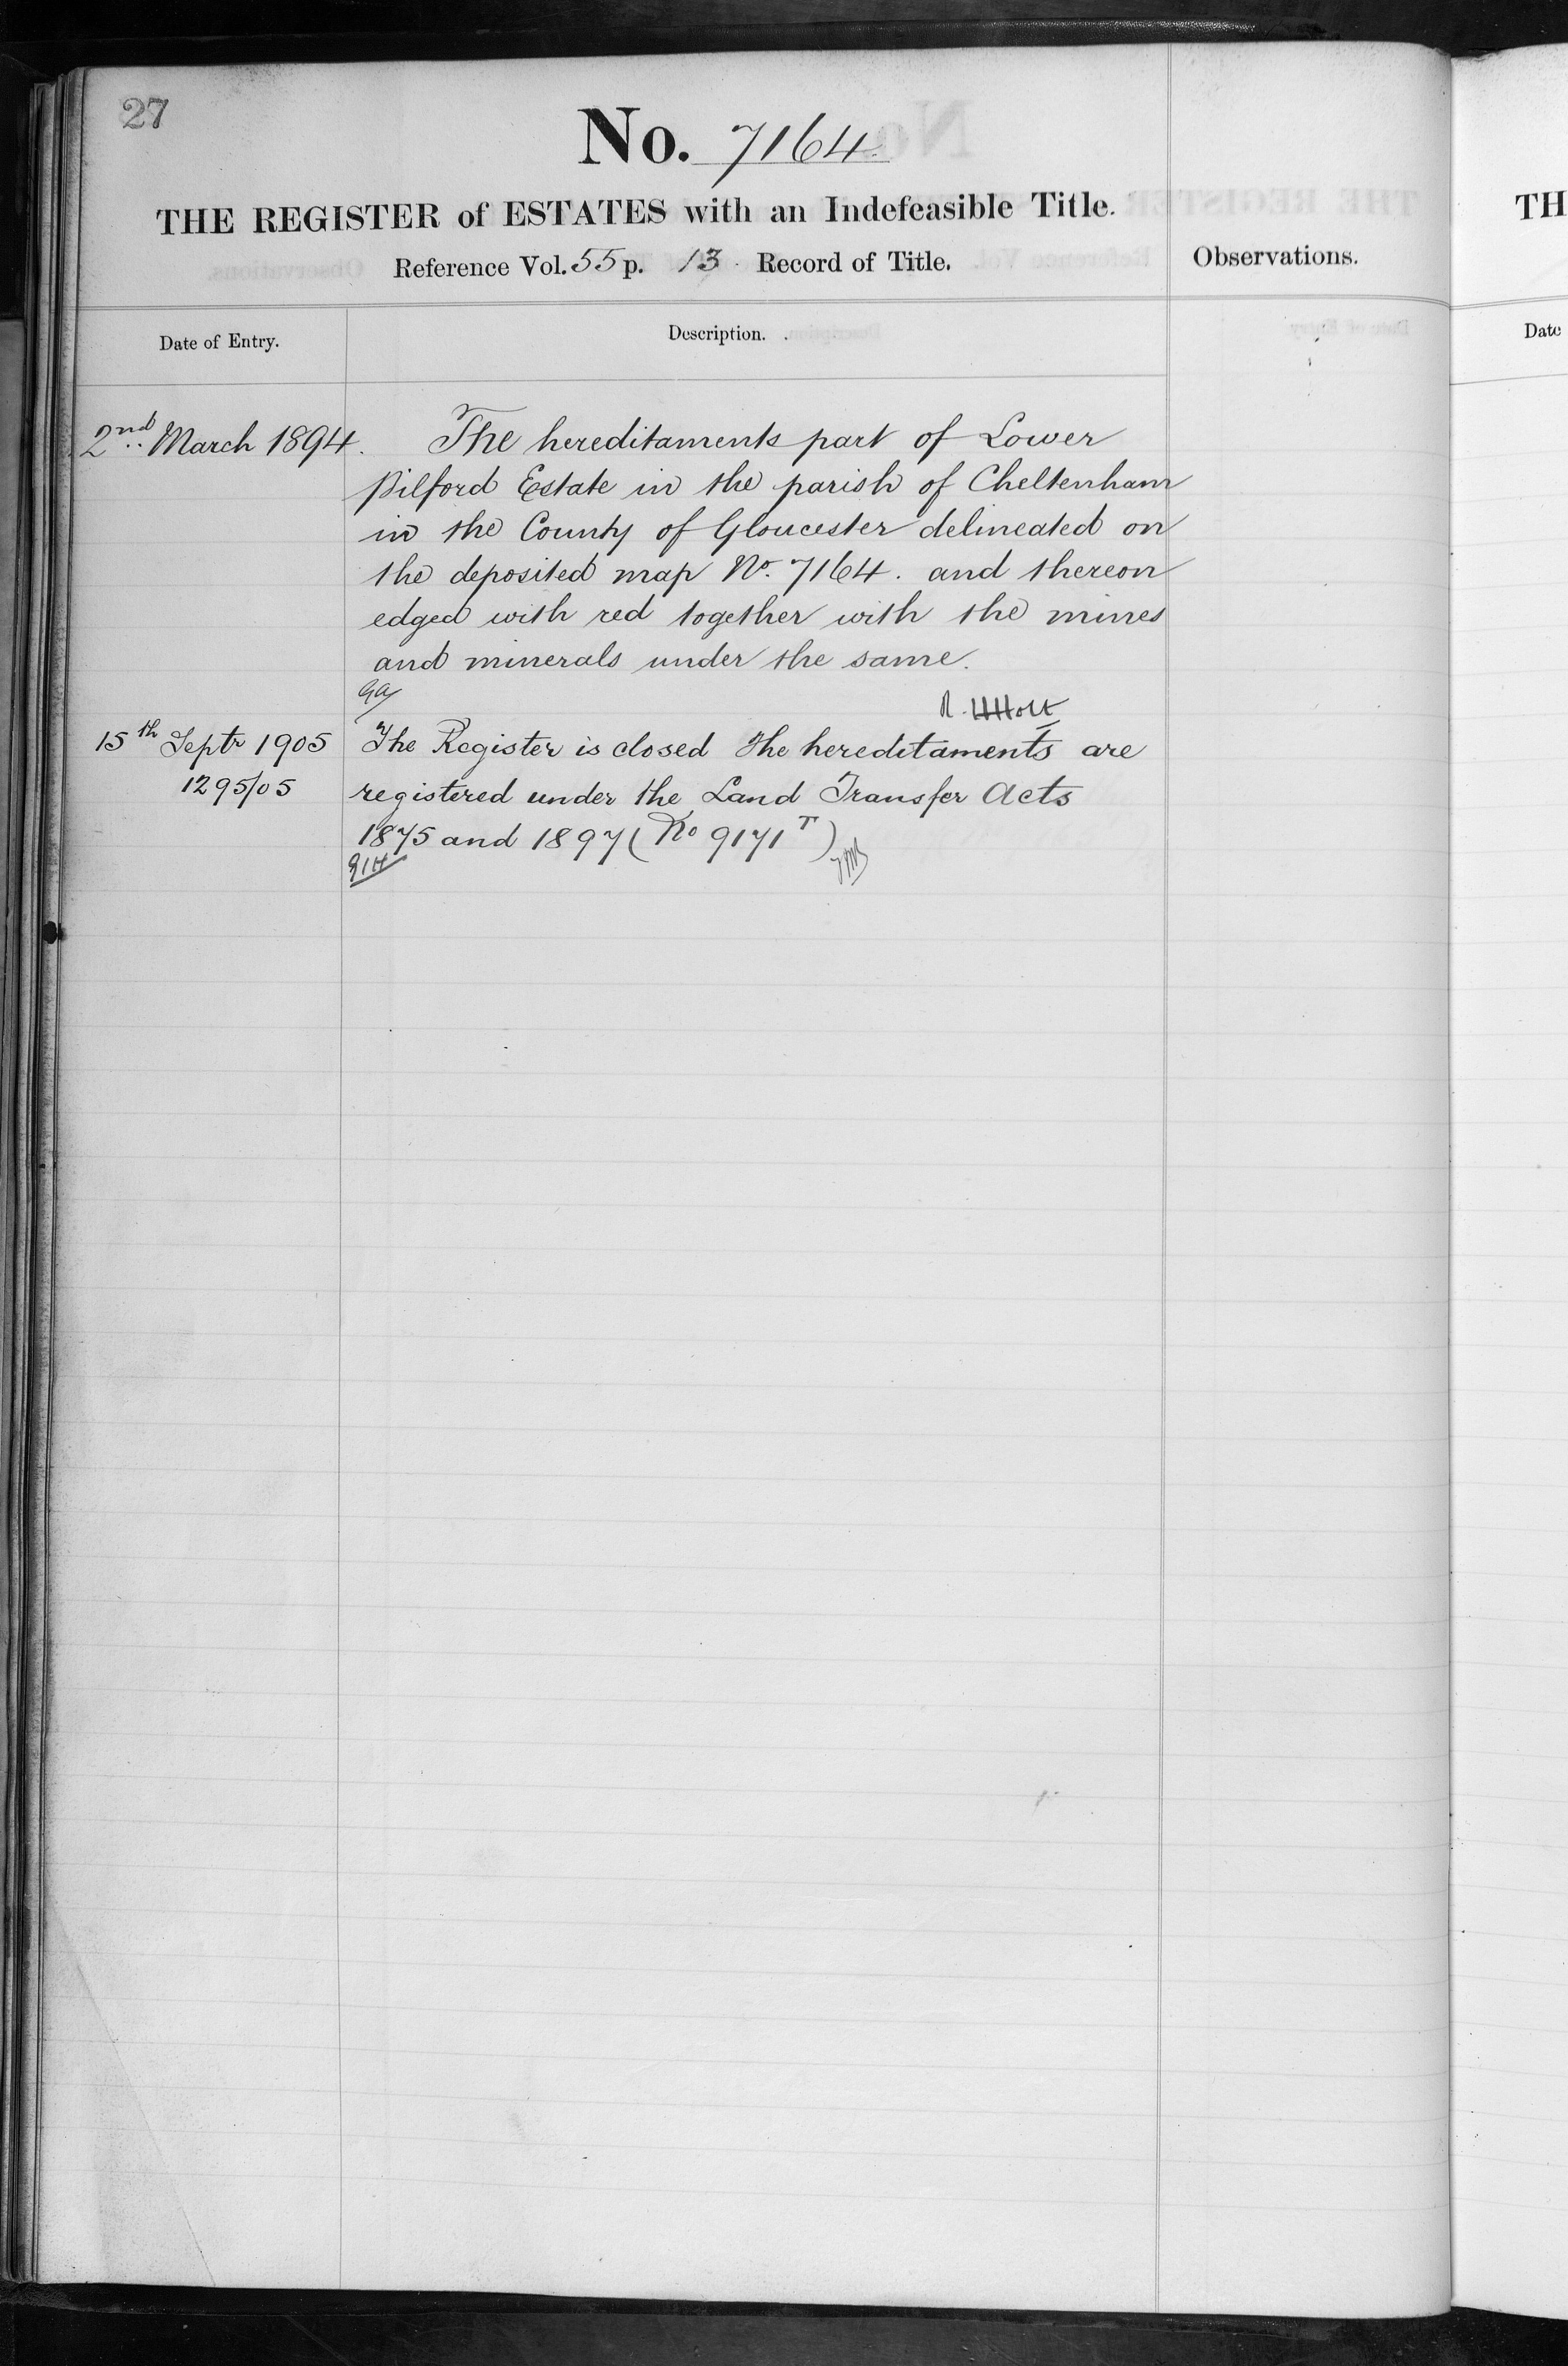 27
No. 7164.
THE REGISTER of ESTATES with an Indefeasible Title.
Reference Vol. 55 p. 13. Record of Title.
Observations.
Date of Entry.
Description.
2nd March 1894.
The hereditaments part of Lower
Pilford Estate in the parish of Cheltenham
in the County of Gloucester delineated on
the deposited map No. 7164. and thereon
edged with red together with the mines
and minerals under the same.
R. H Holt
15th Septr 1905
The Register is closed The hereditaments are
1295/05
registered under the Land Transfer Acts
1875 and 1897 (No 9171 T)
TH
Date